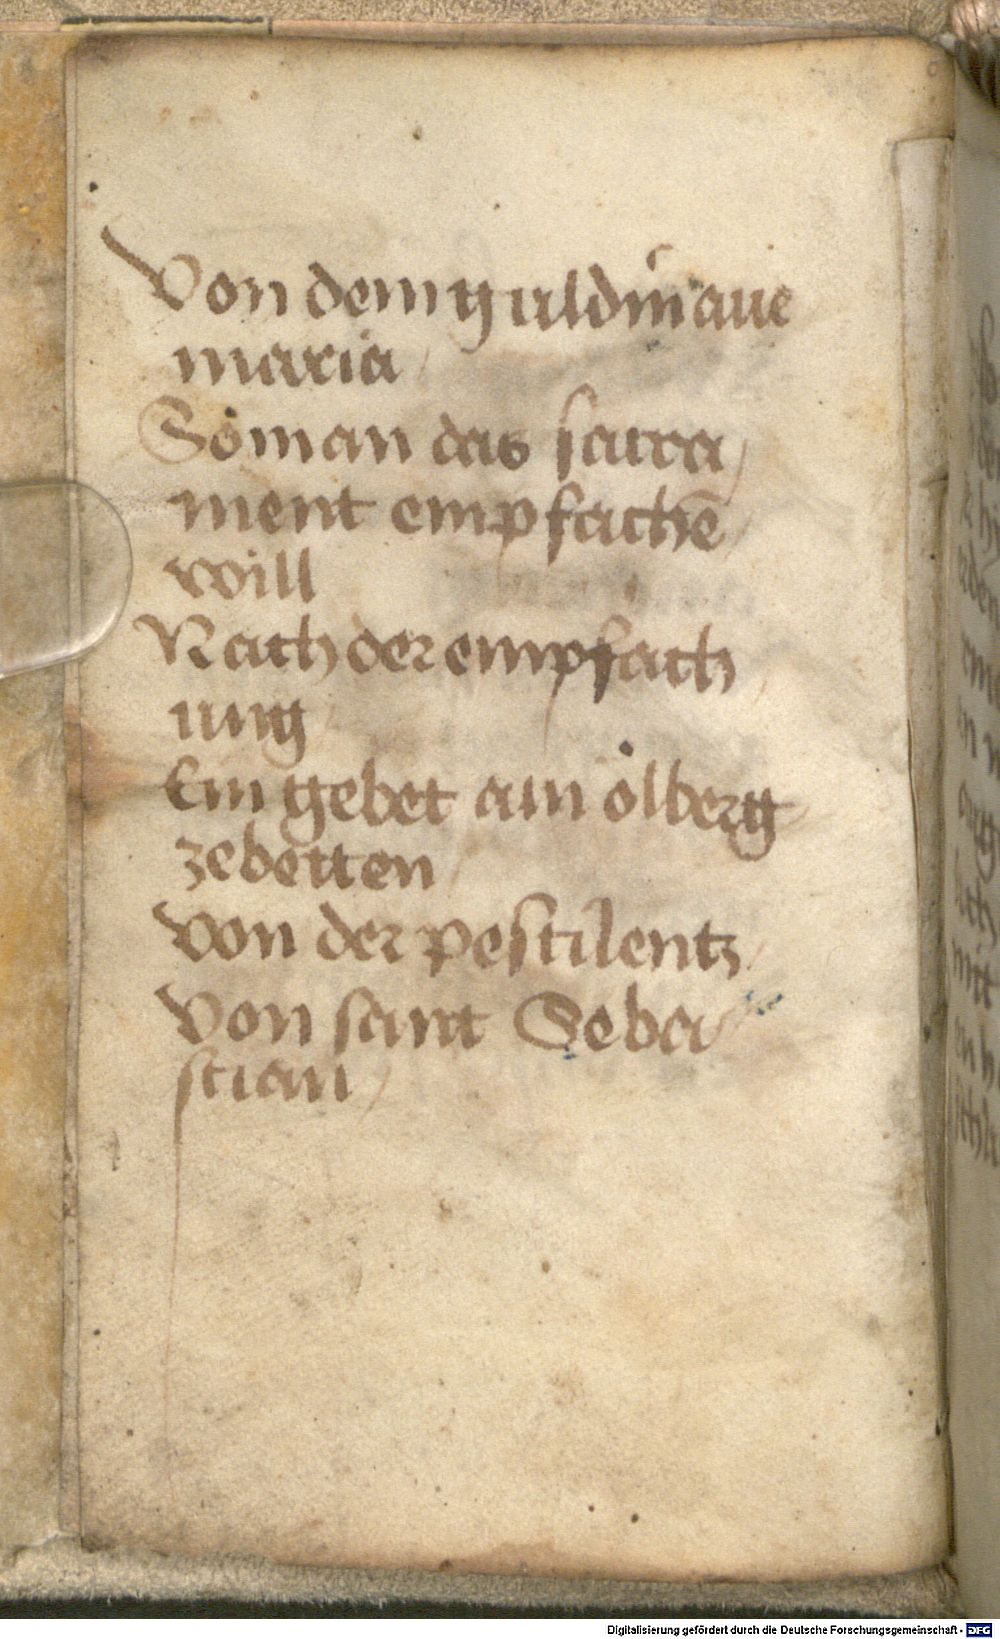 Von dem guldin aue
maria
So man das sacra
ment empfachē
will
Nach der empfach
ung
Ein gebet am ölberg
zebetten
von der pestilentz
Von sant Seba
stian
Digitalisierung gefördert durch die Deutsche Forschungsgemeinschaft - DFG